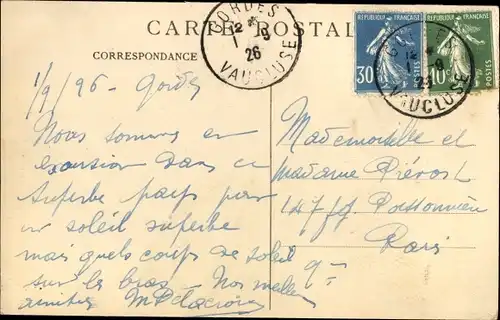 CARTE POSTALE
CORRESPONDANCE
GORDES
12 *
1 - 9
26
VAUCLUSE
REPUBLIQUE FRANÇAISE
30
POSTES
REPUBLIQUE FRANÇAISE
10
POSTES
12 *
VAUCLUSE
1/9/26 - Gordes
Nous sommes en
excursion dans ce
superbe pays par
un soleil superbe
mais quels coups de soleil
sur les bras - Nos meilleures
amitiés M Delacroix
Mademoiselle et
Madame Prévost
147 fg Poissonnière
Paris
9e